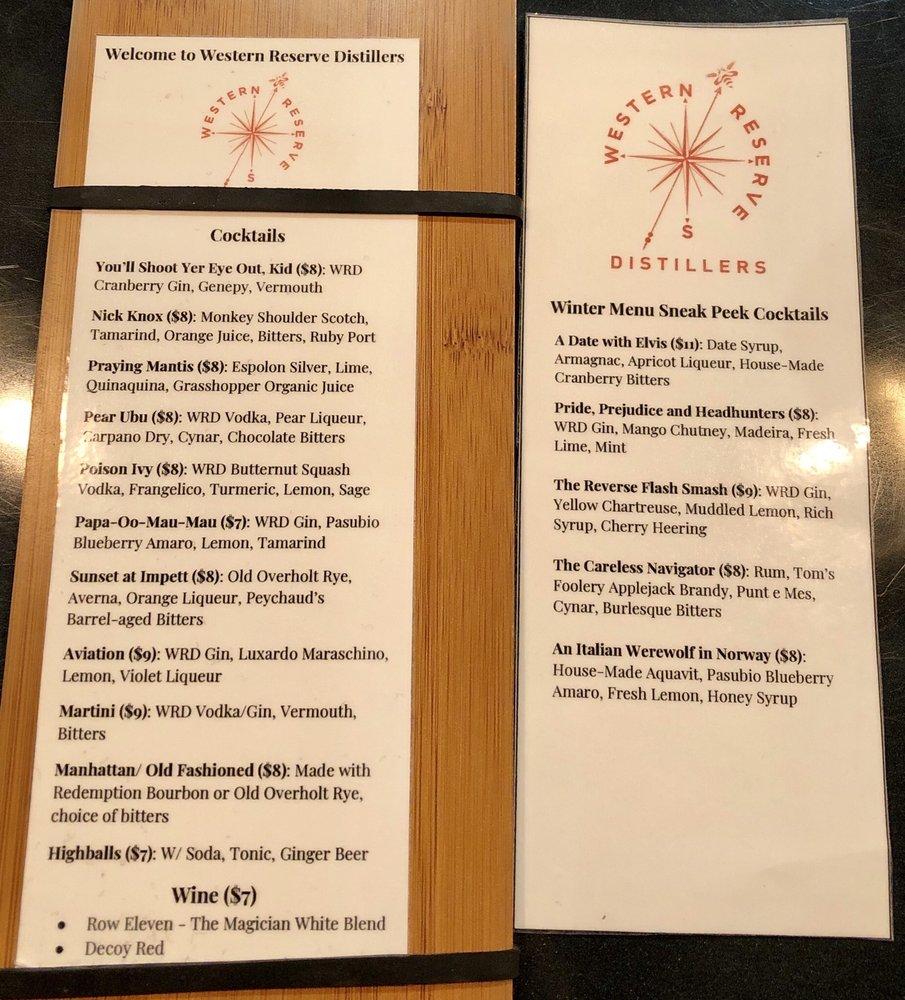 Welcome to Western Reserve Distillers
WESTERN RESERVE
S
Cocktails
You'll Shoot Yer Eye Out, Kid ($8): WRD
Cranberry Gin, Genepy, Vermouth
Nick Knox ($8): Monkey Shoulder Scotch,
Tamarind, Orange Juice, Bitters, Ruby Port
Praying Mantis ($8): Espolon Silver, Lime,
Quinaquina, Grasshopper Organic Juice
Pear Ubu ($8): WRD Vodka, Pear Liqueur,
Carpano Dry, Cynar, Chocolate Bitters
Poison Ivy ($8): WRD Butternut Squash
Vodka, Frangelico, Turmeric, Lemon, Sage
Papa-Oo-Mau-Mau ($7): WRD Gin, Pasubio
Blueberry Amaro, Lemon, Tamarind
Sunset at Impett ($8): Old Overholt Rye,
Averna, Orange Liqueur, Peychaud's
Barrel-aged Bitters
Aviation ($9): WRD Gin, Luxardo Maraschino,
Lemon, Violet Liqueur
Martini ($9): WRD Vodka/Gin, Vermouth,
Bitters
Manhattan/ Old Fashioned ($8): Made with
Redemption Bourbon or Old Overholt Rye,
choice of bitters
Highballs ($7): W/ Soda, Tonic, Ginger Beer
Wine ($7)
• Row Eleven - The Magician White Blend
• Decoy Red
WESTERN RESERVE
S
DISTILLERS
Winter Menu Sneak Peek Cocktails
A Date with Elvis ($11): Date Syrup,
Armagnac, Apricot Liqueur, House-Made
Cranberry Bitters
Pride, Prejudice and Headhunters ($8):
WRD Gin, Mango Chutney, Madeira, Fresh
Lime, Mint
The Reverse Flash Smash ($9): WRD Gin,
Yellow Chartreuse, Muddled Lemon, Rich
Syrup, Cherry Heering
The Careless Navigator ($8): Rum, Tom's
Foolery Applejack Brandy, Punt e Mes,
Cynar, Burlesque Bitters
An Italian Werewolf in Norway ($8):
House-Made Aquavit, Pasubio Blueberry
Amaro, Fresh Lemon, Honey Syrup